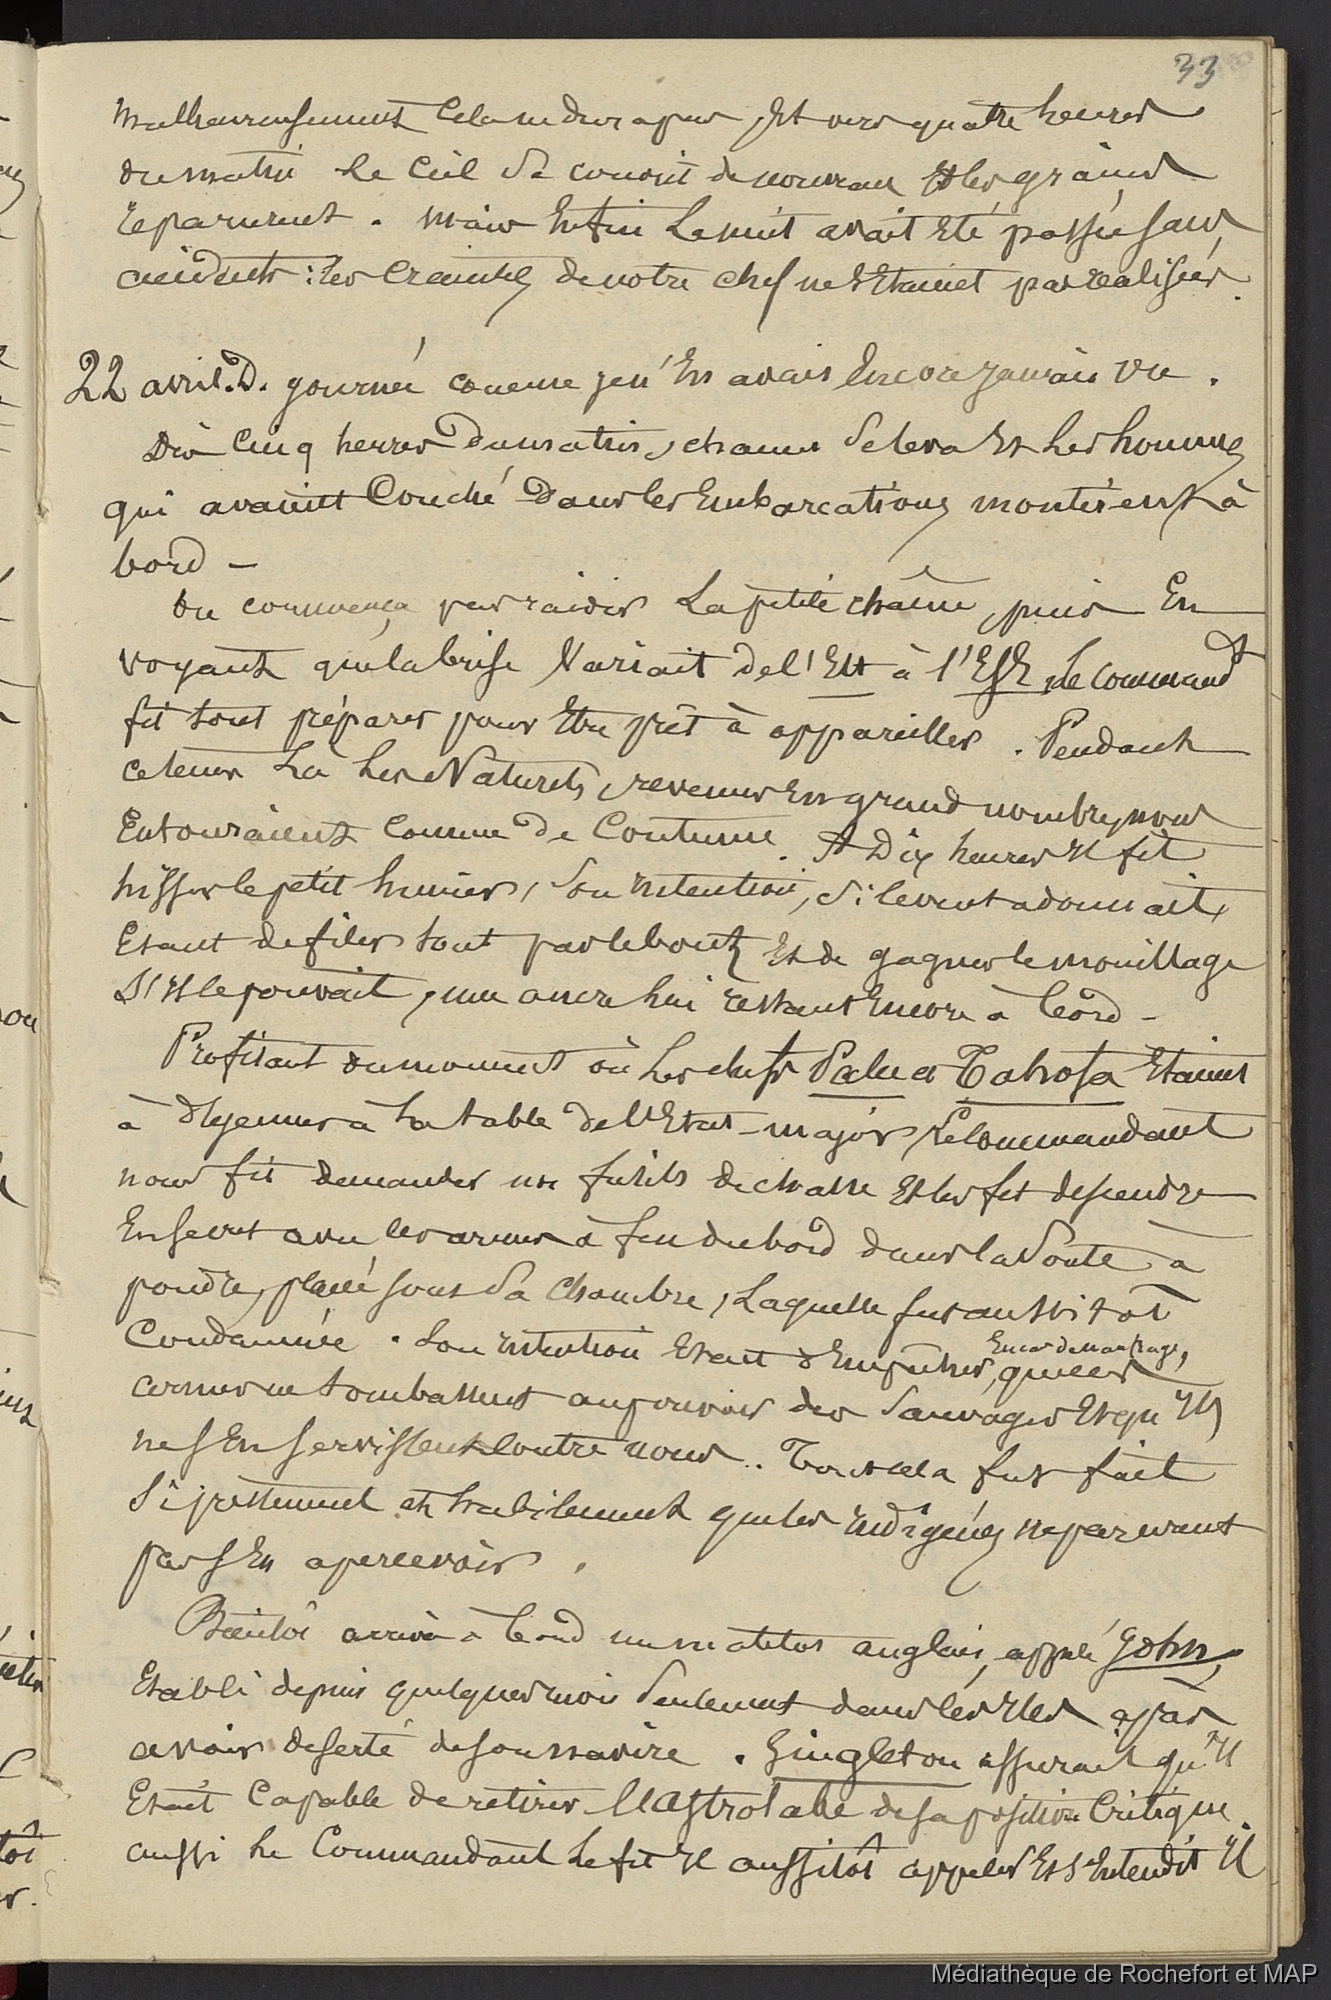 33
Malheureusement cela ne dura pas, Et vers quatre heures
du matin le Ciel se couvrit de nouveau Et les grains
reparurent. Mais Enfin La nuit avait Eté passée sans
accidents : les craintes de notre chef ne s'Etaient pas realisées.
22 avril. D. journée comme je n'En avais Encore jamais vu.
Dès Cinq heures du matin, chacun se leva Et Les hommes
qui avaient Couché Dans les Embarcations montèrent à
bord —
On commença par raidir La petite chaîne, puis En
voyant que la brise Variait de l'Est à l'ESE, Le command.t
fit tout préparer pour Etre prêt à appareiller. Pendant
ce temps Là Les Naturels, revenus En grand nombre, nous
Entouraient Comme De Coutume. A Dix heures Il fit
hisser le petit hunier, Son Intention, Si le vent adonnait,
Etant de filer tout par le bout, Et de gagner le mouillage
S'Il le pouvait, une ancre lui restant Encore à bord —
Profitant du moment où Les chefs Palu et Tahofa Etaient
à dejeuner à La table de l'Etat-major, Le Commandant
nous fit demander nos fusils de chasse Et les fit descendre
En secret avec les armes à feu du bord dans la Soute à
poudre, placée sous Sa Chambre, Laquelle fut aussitôt
Condamnée. Son Intention Etait d'Empêcher, que ces
En cas de naufrage,
armes ne tombassent au pouvoir des Sauvages Et qu'Ils
ne s'En servissent contre nous. Tout cela fut fait
Si prestement et habilement que les Indigènes ne parvinrent
pas s'En apercevoir.
Bientôt arriva à bord un matelot anglais, appelé John,
Etabli depuis quelques mois Seulement dans les Iles après
avoir deserté de son navire. Singleton assurait qu'Il
Etait Capable de retirer l'Astrolabe de sa position Critique.
aussi Le Commandant Le fit Il aussitôt appeler Et s'Entendit Il
Médiathèque de Rochefort et MAP